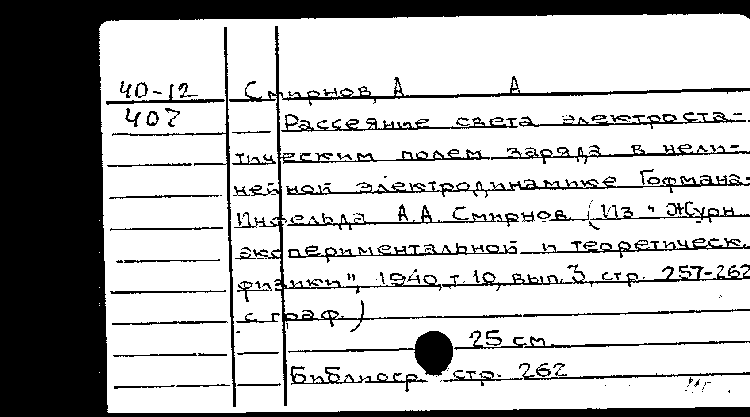 40-12 Смирнов, А А
407 Рассеяние света электроста-
тическим полем заряда в нели-
нейной электродинамике Гофмана-
Инфельда А.А. Смирнов (Из "Журн.
экспериментальной и теоретическ.
физики", 1940, т. 10, вып. 3, стр. 257-262
с граф.)
25 см.
Библиогр стр. 262